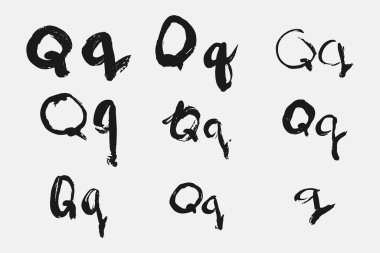 Qq Qq Qq
Qq Qq Qq
Qq Qq q